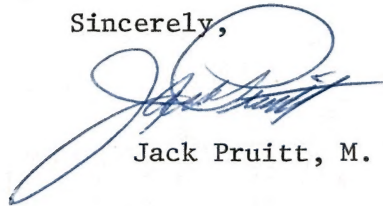 Sincerely,
Jack Pruitt
Jack Pruitt, M.